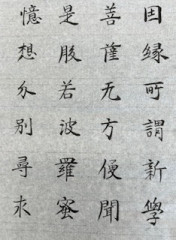 因縁所謂新學
菩薩无方便聞
是般若波羅蜜
憶想分別尋求